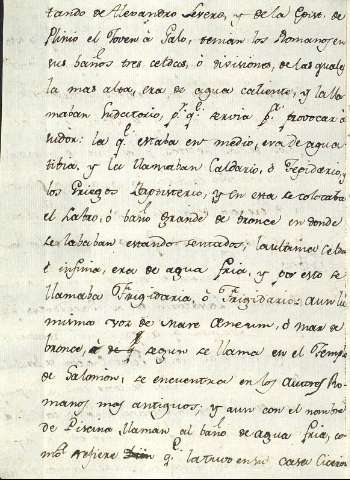 tando de Alexandro Severo, y de la Epist. de
Plinio el Joven à Galo, tenian los Romanos en
sus baños tres celdas, ò divisiones, de las quales
la mas alta, era de agua caliente, y la lla-
maban Sudatorio, p.r q.e servia p.a provocar à
sudor: la q.e estaba en medio, era de agua
tibia, y la llamaban Caldario, ò Tepidario, y
los Griegos, y en esta se colocaba
el Labro, ò baño grande de bronce en donde
se lababan estando sentados; la ultima Celda
è infima, era de agua fria, y por esto se
llamaba Frigidaria, ò Frigidario: aun la
misma voz de mare Aneum, ò mar de
bronce, segun se llama en el Templo
de Salomon, se encuentra en los autores Ro-
manos mas antiguos; y aun con el nombre
de Piscina llaman al baño de agua fria, co-
mo refiere q.e la tuvo en su casa Ciceron